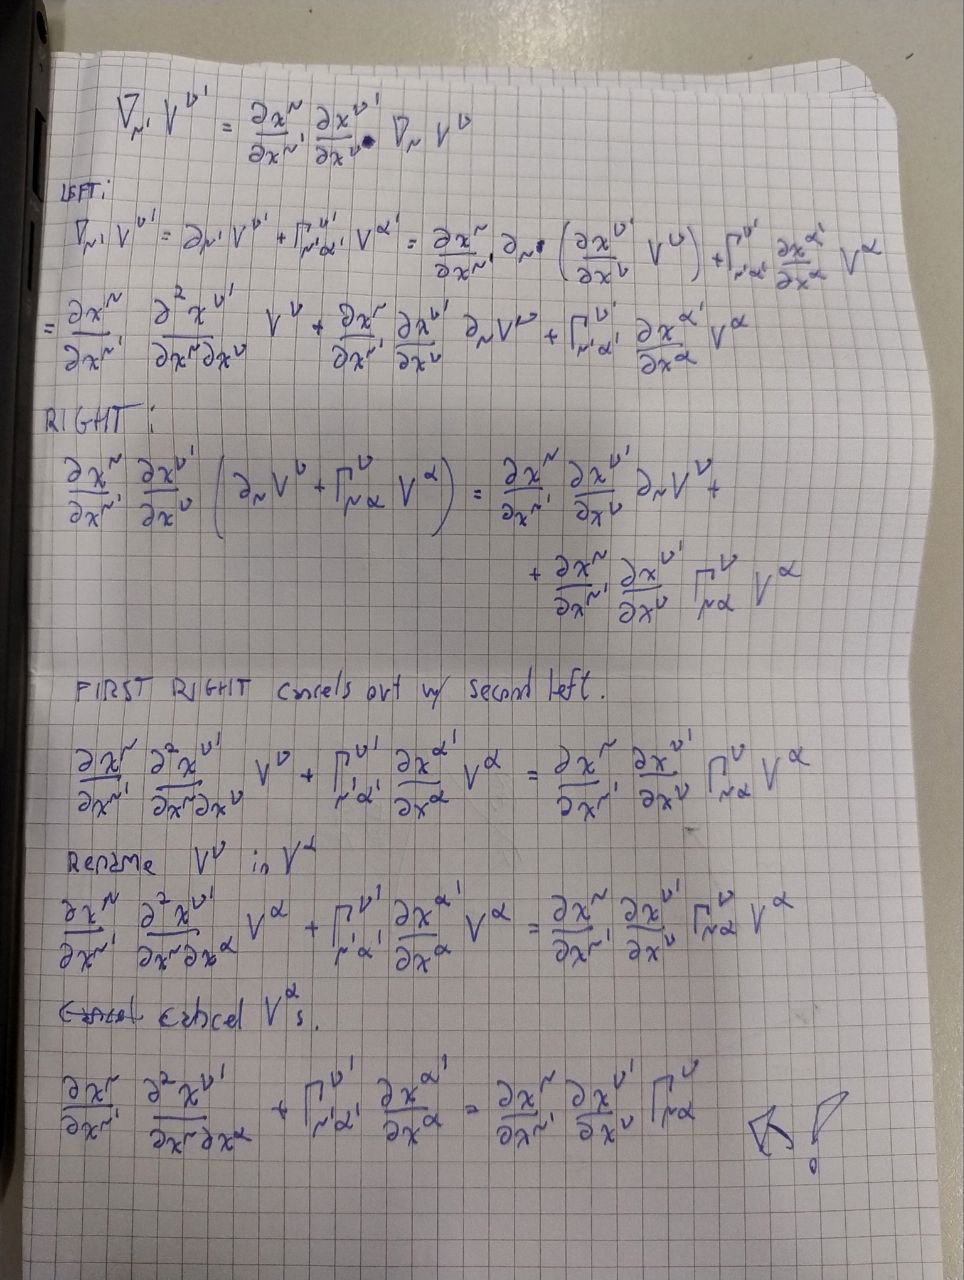 ∇_μ' V^ν' = ∂x^μ/∂x^μ' ∂x^ν'/∂x^ν ∇_μ V^ν
LEFT:
∇_μ' V^ν' = ∂_μ' V^ν' + Γ^ν'_μ'α' V^α' = ∂x^μ/∂x^μ' ∂_μ (∂x^ν'/∂x^ν V^ν) + Γ^ν'_μ'α' ∂x^α'/∂x^α V^α
= ∂x^μ/∂x^μ' ∂²x^ν'/∂x^μ∂x^ν V^ν + ∂x^μ/∂x^μ' ∂x^ν'/∂x^ν ∂_μ V^ν + Γ^ν'_μ'α' ∂x^α'/∂x^α V^α
RIGHT:
∂x^μ/∂x^μ' ∂x^ν'/∂x^ν (∂_μ V^ν + Γ^ν_μα V^α) = ∂x^μ/∂x^μ' ∂x^ν'/∂x^ν ∂_μ V^ν +
+ ∂x^μ/∂x^μ' ∂x^ν'/∂x^ν Γ^ν_μα V^α
FIRST RIGHT cancels out w/ second left.
∂x^μ/∂x^μ' ∂²x^ν'/∂x^μ∂x^ν V^ν + Γ^ν'_μ'α' ∂x^α'/∂x^α V^α = ∂x^μ/∂x^μ' ∂x^ν'/∂x^ν Γ^ν_μα V^α
Rename V^ν in V^α
∂x^μ/∂x^μ' ∂²x^ν'/∂x^μ∂x^α V^α + Γ^ν'_μ'α' ∂x^α'/∂x^α V^α = ∂x^μ/∂x^μ' ∂x^ν'/∂x^ν Γ^ν_μα V^α
cancel V^α s.
∂x^μ/∂x^μ' ∂²x^ν'/∂x^μ∂x^α + Γ^ν'_μ'α' ∂x^α'/∂x^α = ∂x^μ/∂x^μ' ∂x^ν'/∂x^ν Γ^ν_μα !